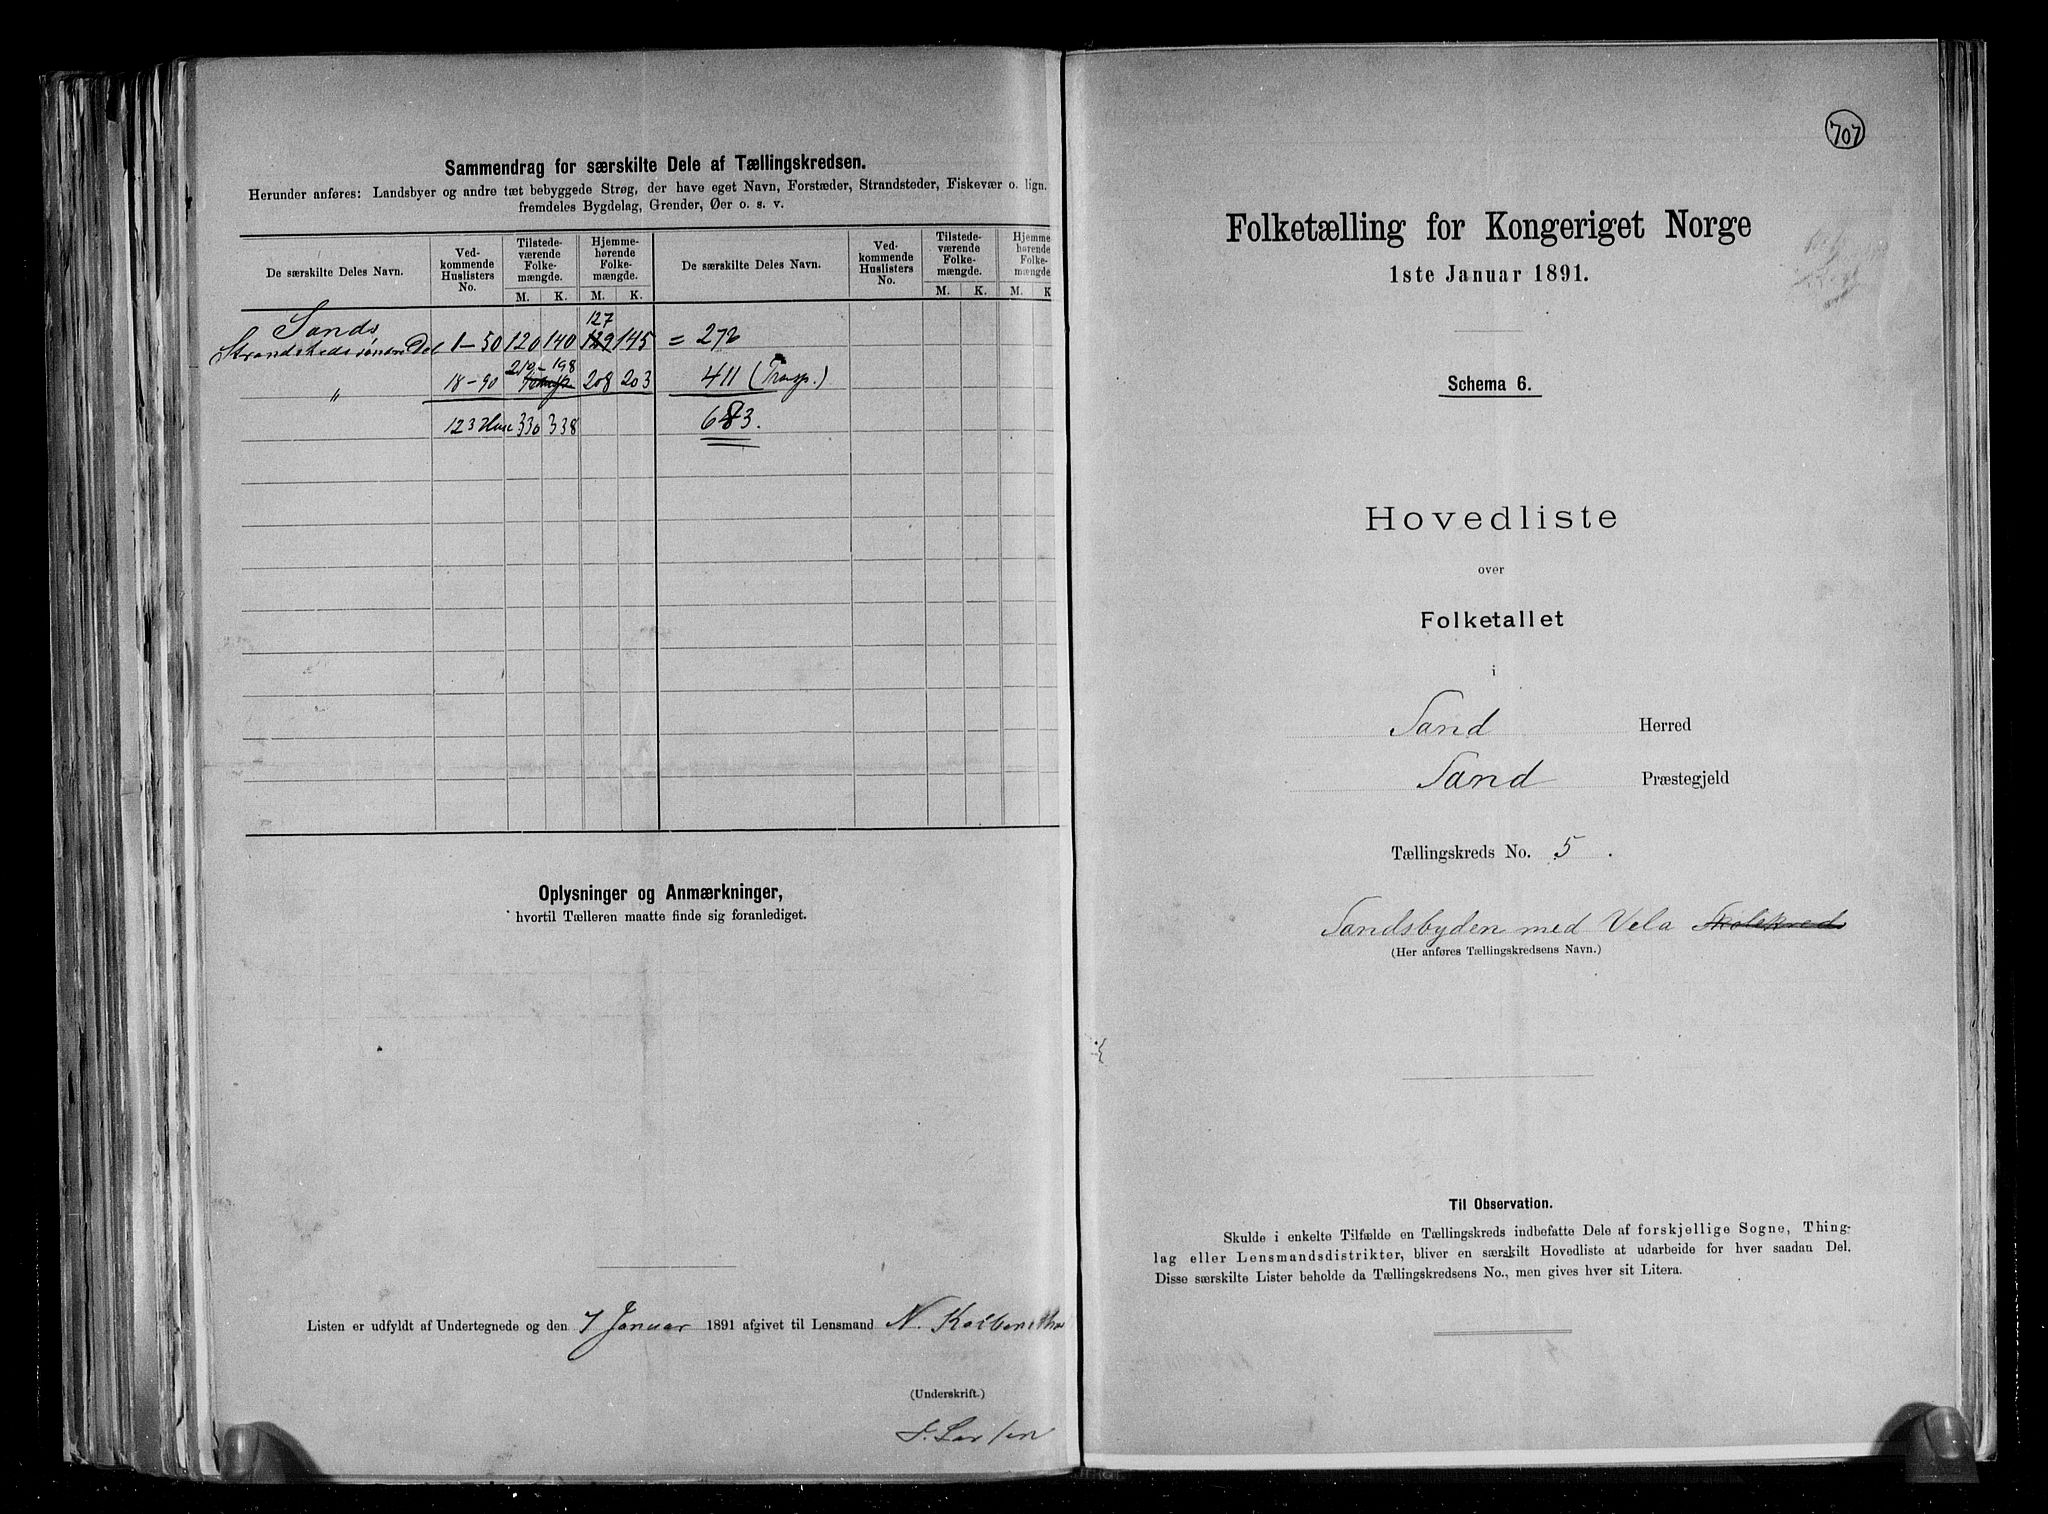 Sammendrag for særskilte Dele af Tællingskredsen.
Herunder anføres: Landsbyer og andre tæt bebyggede Strøg, der have eget Navn, Forstæder, Strandsteder, Fiskevær o. lign.
fremdeles Bygdelag, Grender, Øer o. s. v.
De særskilte Deles Navn. Ved-kommende Huslisters No. Tilstede-værende Folke-mængde. Hjemme-hørende Folke-mængde. De særskilte Deles Navn. Ved-kommende Huslisters No. Tilstede-værende Folke-mængde. Hjemme-hørende Folke-mængde.
M. K. M. K. M. K. M. K
Sands 127
Strandsteds søndre Del 1-50 120 140 129 145 = 272
210-198
" 18-90 208 203 411 (Transp.)
123 Huse 330 338 683.
Oplysninger og Anmærkninger,
hvortil Tælleren maatte finde sig foranlediget.
Listen er udfyldt af Undertegnede og den 7 Januar 1891 afgivet til Lensmand N.
(Underskrift.)
Larsen
707
Folketælling for Kongeriget Norge
1ste Januar 1891.
Schema 6.
Hovedliste
over
Folketallet
i
Sand Herred
Sand Præstegjeld
Tællingskreds No. 5.
Sandsbyden med Vela Skolekreds
(Her anføres Tællingskredsens Navn.)
Til Observation.
Skulde i enkelte Tilfælde en Tællingskreds indbefatte Dele af forskjellige Sogne, Thing-
lag eller Lensmandsdistrikter, bliver en særskilt Hovedliste at udarbeide for hver saadan Del.
Disse særskilte Lister beholde da Tællingskredsens No., men gives hver sit Litera.